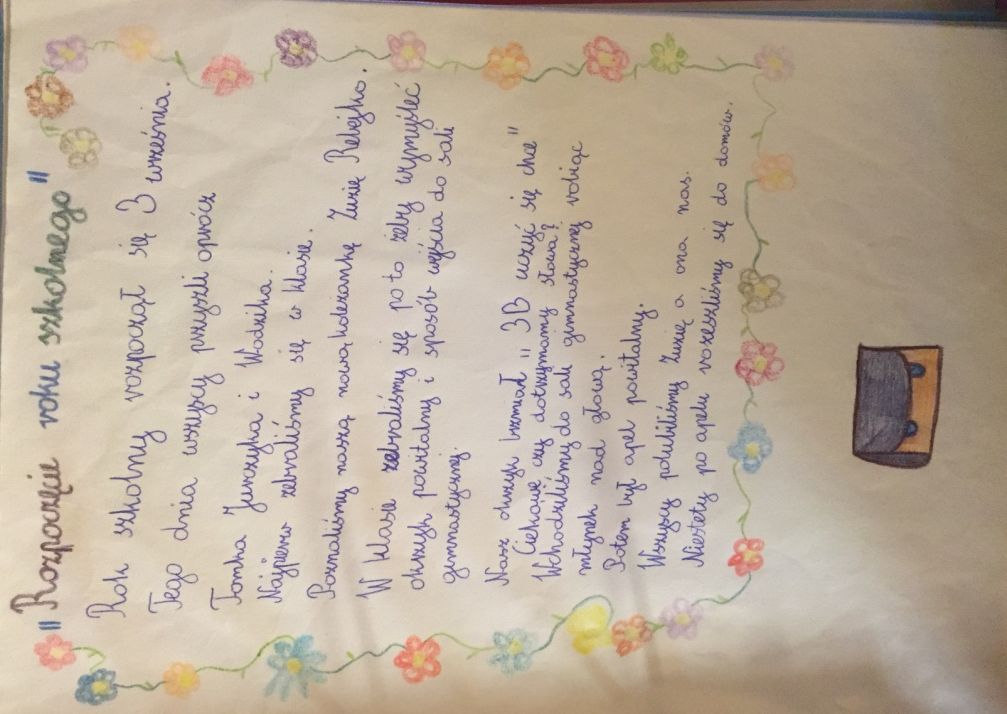 "Rozpoczęcie roku szkolnego"
Rok szkolny rozpoczął się 3 września.
Tego dnia wszyscy przyszli oprócz
Tomka Jurczyka i Wodzika.
Najpierw zebraliśmy się w klasie.
Poznaliśmy naszą nową koleżankę Zuzię Rebejko.
W klasie zebraliśmy się po to żeby wymyśleć
okrzyk powitalny i sposób wejścia do sali
gimnastycznej.
Nasz okrzyk brzmiał "3B uczyć się chce"
Ciekawe czy dotrzymamy słowa?
Wchodziliśmy do sali gimnastycznej robiąc
młynek nad głową.
Potem był apel powitalny.
Wszyscy polubiliśmy Zuzię a ona nas.
Niestety po apelu rozeszliśmy się do domów.